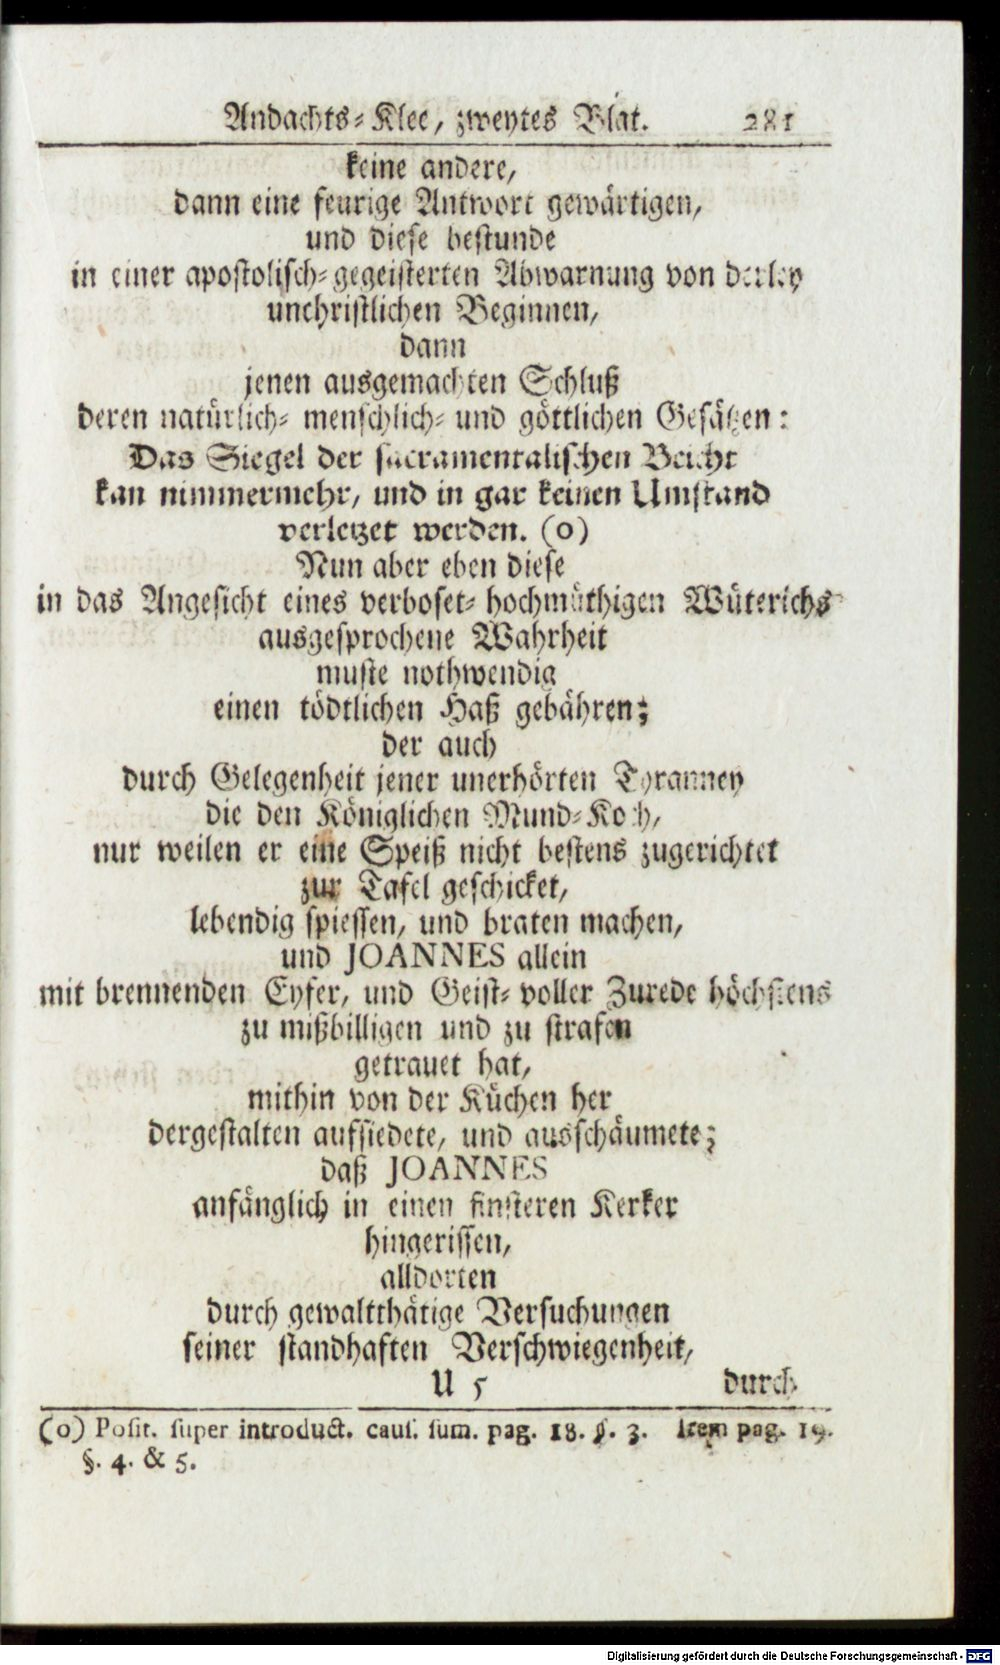 Andachts-Klee, zweytes Blat. 281
keine andere,
dann eine feurige Antwort gewärtigen,
und diese bestunde
in einer apostolisch-gegeisterten Abwarnung von derley
unchristlichen Beginnen,
dann
jenen ausgemachten Schluß
deren natürlich- menschlich- und göttlichen Gesätzen:
Das Siegel der sacramentalischen Beicht
kan nimmermehr, und in gar keinen Umstand
verletzet werden. (o)
Nun aber eben diese
in das Angesicht eines verboset-hochmüthigen Wüterichs
ausgesprochene Wahrheit
muste nothwendig
einen tödtlichen Haß gebähren;
der auch
durch Gelegenheit jener unerhörten Tyranney
die den Königlichen Mund-Koch,
nur weilen er eine Speiß nicht bestens zugerichtet
zur Tafel geschicket,
lebendig spiessen, und braten machen,
und JOANNES allein
mit brennenden Eyfer, und Geist-voller Zurede höchstens
zu mißbilligen und zu strafen
getrauet hat,
mithin von der Küchen her
dergestalten aufsiedete, und ausschäumete;
daß JOANNES
anfänglich in einen finsteren Kerker
hingerissen,
alldorten
durch gewaltthätige Versuchungen
seiner standhaften Verschwiegenheit,
U 5 durch
(o) Posit. super introduct. caus. sum. pag. 18. §. 3. Item pag. 19.
§. 4. & 5.
Digitalisierung gefördert durch die Deutsche Forschungsgemeinschaft - DFG